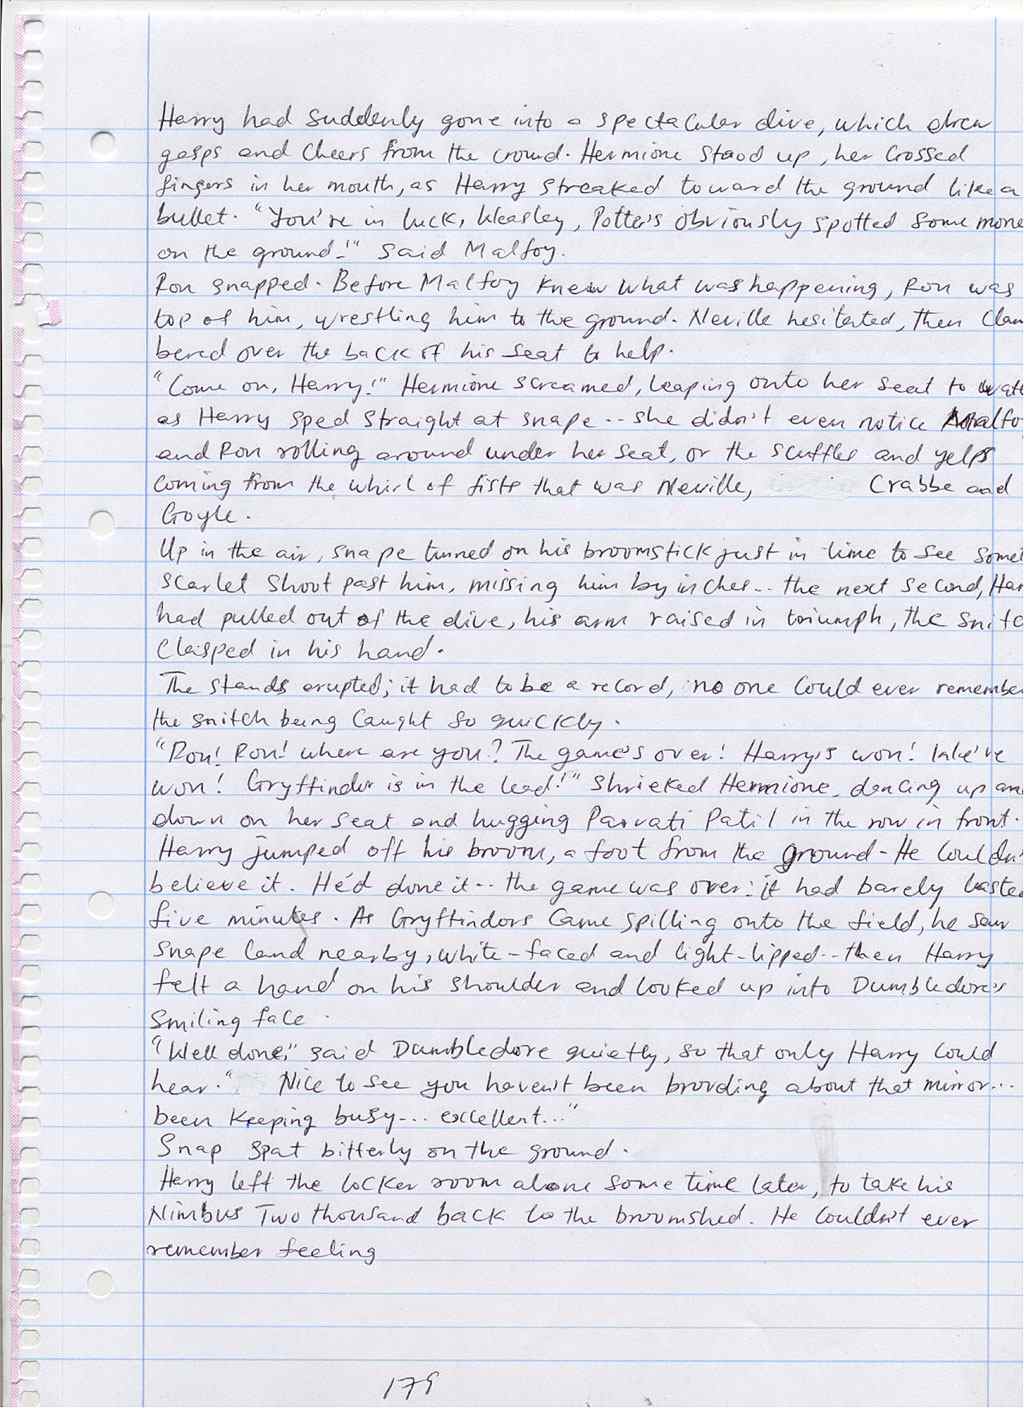 Harry had suddenly gone into a spectacular dive, which drew
gasps and cheers from the crowd. Hermione stood up, her crossed
fingers in her mouth, as Harry streaked toward the ground like a
bullet. "You're in luck, Weasley, Potter's obviously spotted some mone
on the ground!" said Malfoy.
Ron snapped. Before Malfoy knew what was happening, Ron was
top of him, wrestling him to the ground. Neville hesitated, then clam
bered over the back of his seat to help.
"Come on, Harry!" Hermione screamed, leaping onto her seat to wat
as Harry sped straight at snape -- she didn't even notice Malfo
and Ron rolling around under her seat, or the scuffles and yelps
coming from the whirl of fists that was Neville, Crabbe and
Goyle.
Up in the air, snape turned on his broomstick just in time to see somet
scarlet shoot past him, missing him by inches -- the next second, Har
had pulled out of the dive, his arm raised in triumph, the snitc
clasped in his hand.
The stands erupted; it had to be a record, no one could ever remember
the snitch being caught so quickly.
"Ron! Ron! where are you? The game's over! Harry's won! We've
won! Gryffindor is in the lead!" shrieked Hermione, dancing up an
down on her seat and hugging Parvati Patil in the row in front.
Harry jumped off his broom, a foot from the ground - He couldn'
believe it. He'd done it -- the game was over; it had barely laste
five minutes. As Gryffindors came spilling onto the field, he saw
snape land nearby, white-faced and tight-lipped -- then Harry
felt a hand on his shoulder and looked up into Dumbledore's
smiling face.
"Well done," said Dumbledore quietly, so that only Harry could
hear." Nice to see you haven't been brooding about that mirror...
been keeping busy... excellent..."
Snap spat bitterly on the ground.
Harry left the locker room alone some time later, to take his
Nimbus Two thousand back to the broomshed. He couldn't ever
remember feeling
179